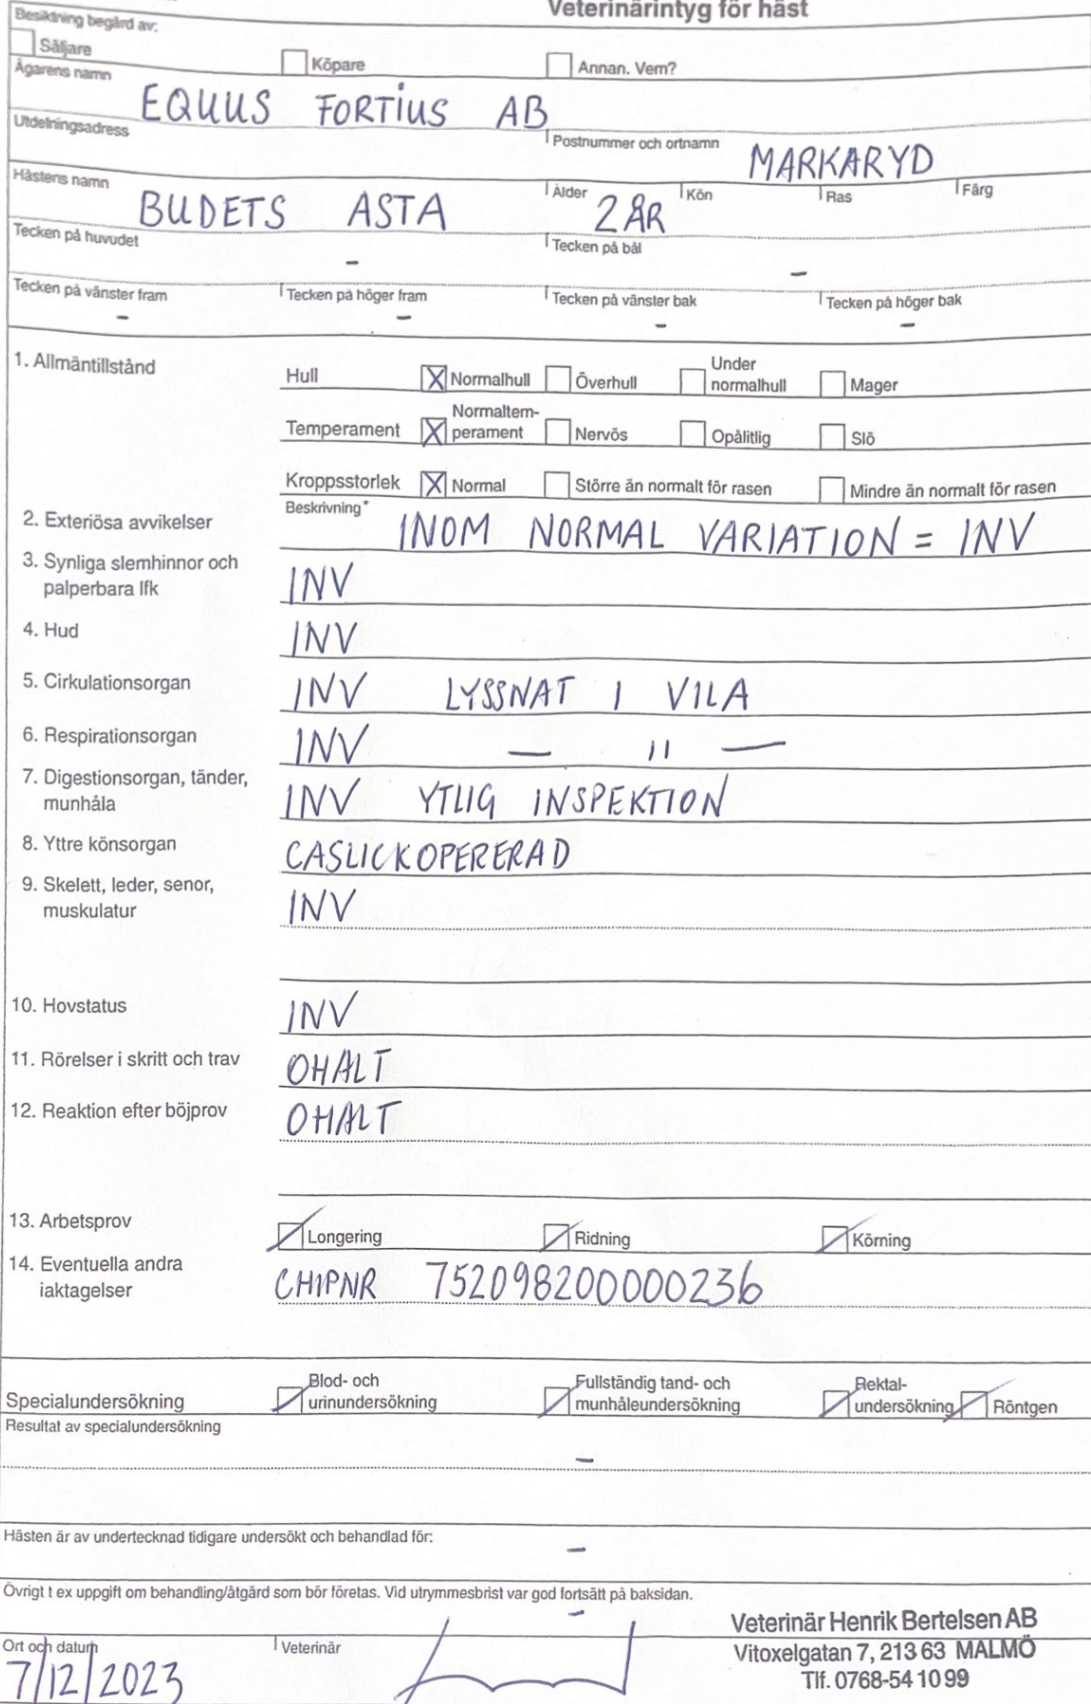 Veterinärintyg för häst
Besiktning begärd av:
Säljare Köpare Annan. Vem?
Ägarens namn
EQUUS FORTIUS AB
Utdelningsadress Postnummer och ortnamn
MARKARYD
Hästens namn Ålder Kön Ras Färg
BUDETS ASTA 2 ÅR
Tecken på huvudet Tecken på bål
- -
Tecken på vänster fram Tecken på höger fram Tecken på vänster bak Tecken på höger bak
- - - -
1. Allmäntillstånd
Hull X Normalhull Överhull Under normalhull Mager
Temperament X Normaltem-perament Nervös Opålitlig Slö
Kroppsstorlek X Normal Större än normalt för rasen Mindre än normalt för rasen
Beskrivning*
2. Exteriösa avvikelser INOM NORMAL VARIATION = INV
3. Synliga slemhinnor och
palperbara lfk INV
4. Hud INV
5. Cirkulationsorgan INV LYSSNAT I VILA
6. Respirationsorgan INV — 11 —
7. Digestionsorgan, tänder,
munhåla INV YTLIG INSPEKTION
8. Yttre könsorgan CASLICKOPERERAD
9. Skelett, leder, senor,
muskulatur INV
10. Hovstatus INV
11. Rörelser i skritt och trav OHALT
12. Reaktion efter böjprov OHALT
13. Arbetsprov Longering Ridning Körning
14. Eventuella andra
iaktagelser CHIPNR 752098200000236
Specialundersökning Blod- och urinundersökning Fullständig tand- och munhåleundersökning Rektal-undersökning Röntgen
Resultat av specialundersökning
-
Hästen är av undertecknad tidigare undersökt och behandlad för:
-
Övrigt t ex uppgift om behandling/åtgärd som bör företas. Vid utrymmesbrist var god fortsätt på baksidan.
-
Veterinär Henrik Bertelsen AB
Ort och datum Veterinär Vitoxelgatan 7, 213 63 MALMÖ
7/12/2023 Tlf. 0768-54 10 99